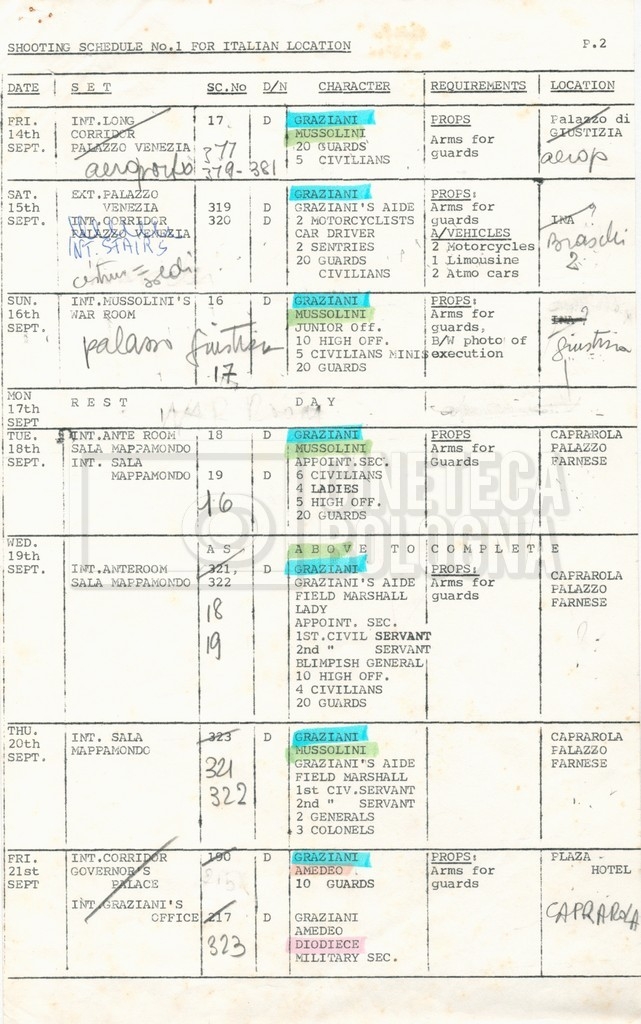 SHOOTING SCHEDULE No.1 FOR ITALIAN LOCATION P.2
DATE SET SC.No D/N CHARACTER REQUIREMENTS LOCATION
FRI. INT.LONG 17 D GRAZIANI PROPS Palazzo di
14th CORRIDOR MUSSOLINI Arms for GIUSTIZIA
SEPT. PALAZZO VENEZIA 377 20 GUARDS guards aerop
aeroporto 379-381 5 CIVILIANS
SAT. EXT.PALAZZO GRAZIANI PROPS:
15th VENEZIA 319 D GRAZIANI'S AIDE Arms for
SEPT. INT.CORRIDOR 320 D 2 MOTORCYCLISTS guards INA ?
PALAZZO VENEZIA CAR DRIVER A/VEHICLES Braschi
INT. STAIRS 2 SENTRIES 2 Motorcycles 2
20 GUARDS 1 Limousine
CIVILIANS 2 Atmo cars
SUN. INT.MUSSOLINI'S 16 D GRAZIANI PROPS: INA ?
16th WAR ROOM MUSSOLINI Arms for
SEPT. JUNIOR Off. guards,
palazzo Giustizia 10 HIGH OFF. B/W photo of Giustizia
17 5 CIVILIANS MINIS execution
20 GUARDS
MON
17th REST DAY
SEPT
TUE. INT.ANTE ROOM 18 D GRAZIANI PROPS CAPRAROLA
18th SALA MAPPAMONDO MUSSOLINI Arms for PALAZZO
SEPT. INT. SALA APPOINT.SEC. Guards FARNESE
MAPPAMONDO 19 D 6 CIVILIANS
16 4 LADIES
5 HIGH OFF.
20 GUARDS
CINETECA
BOLOGNA
WED.
19th AS ABOVE TO COMPLETE
SEPT. INT.ANTEROOM 321, D GRAZIANI PROPS:
SALA MAPPAMONDO 322 GRAZIANI'S AIDE Arms for CAFRAROLA
18 FIELD MARSHALL guards PALAZZO
19 LADY FARNESE
APPOINT. SEC.
1ST.CIVIL SERVANT
2nd " SERVANT
BLIMPISH GENERAL
10 HIGH OFF.
4 CIVILIANS
20 GUARDS
THU. INT. SALA 323 D GRAZIANI CAPRAROLA
20th MAPPAMONDO MUSSOLINI PALAZZO
SEPT. 321 GRAZIANI'S AIDE FARNESE
322 FIELD MARSHALL
1st CIV.SERVANT
2nd " SERVANT
2 GENERALS
3 COLONELS
FRI. INT.CORRIDOR 190 D GRAZIANI PROPS: PLAZA
21st GOVERNOR'S AMEDEO Arms for HOTEL
SEPT PALACE 10 GUARDS guards
INT.GRAZIANI'S CAPRAROLA
OFFICE 217 D GRAZIANI
323 AMEDEO
DIODIECE
MILITARY SEC.